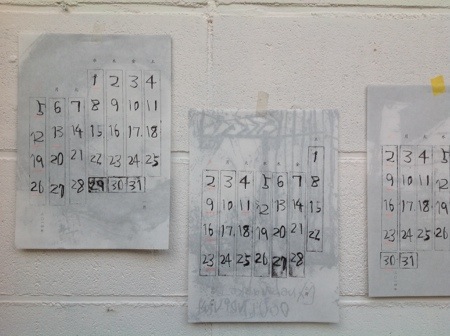 1 2 3 4
5 6 7 8 9 10 11
12 13 14 15 16 17 18
19 20 21 22 23 24 25
26 27 28 29 30 31
1
2 3 4 5 6 7 8
9 10 11 12 13 14 15
16 17 18 19 20 21 22
23 24 25 26 27 28
2 3 4 5
9 10 11 12
16 17 18 19
23 24 25 26
30 31